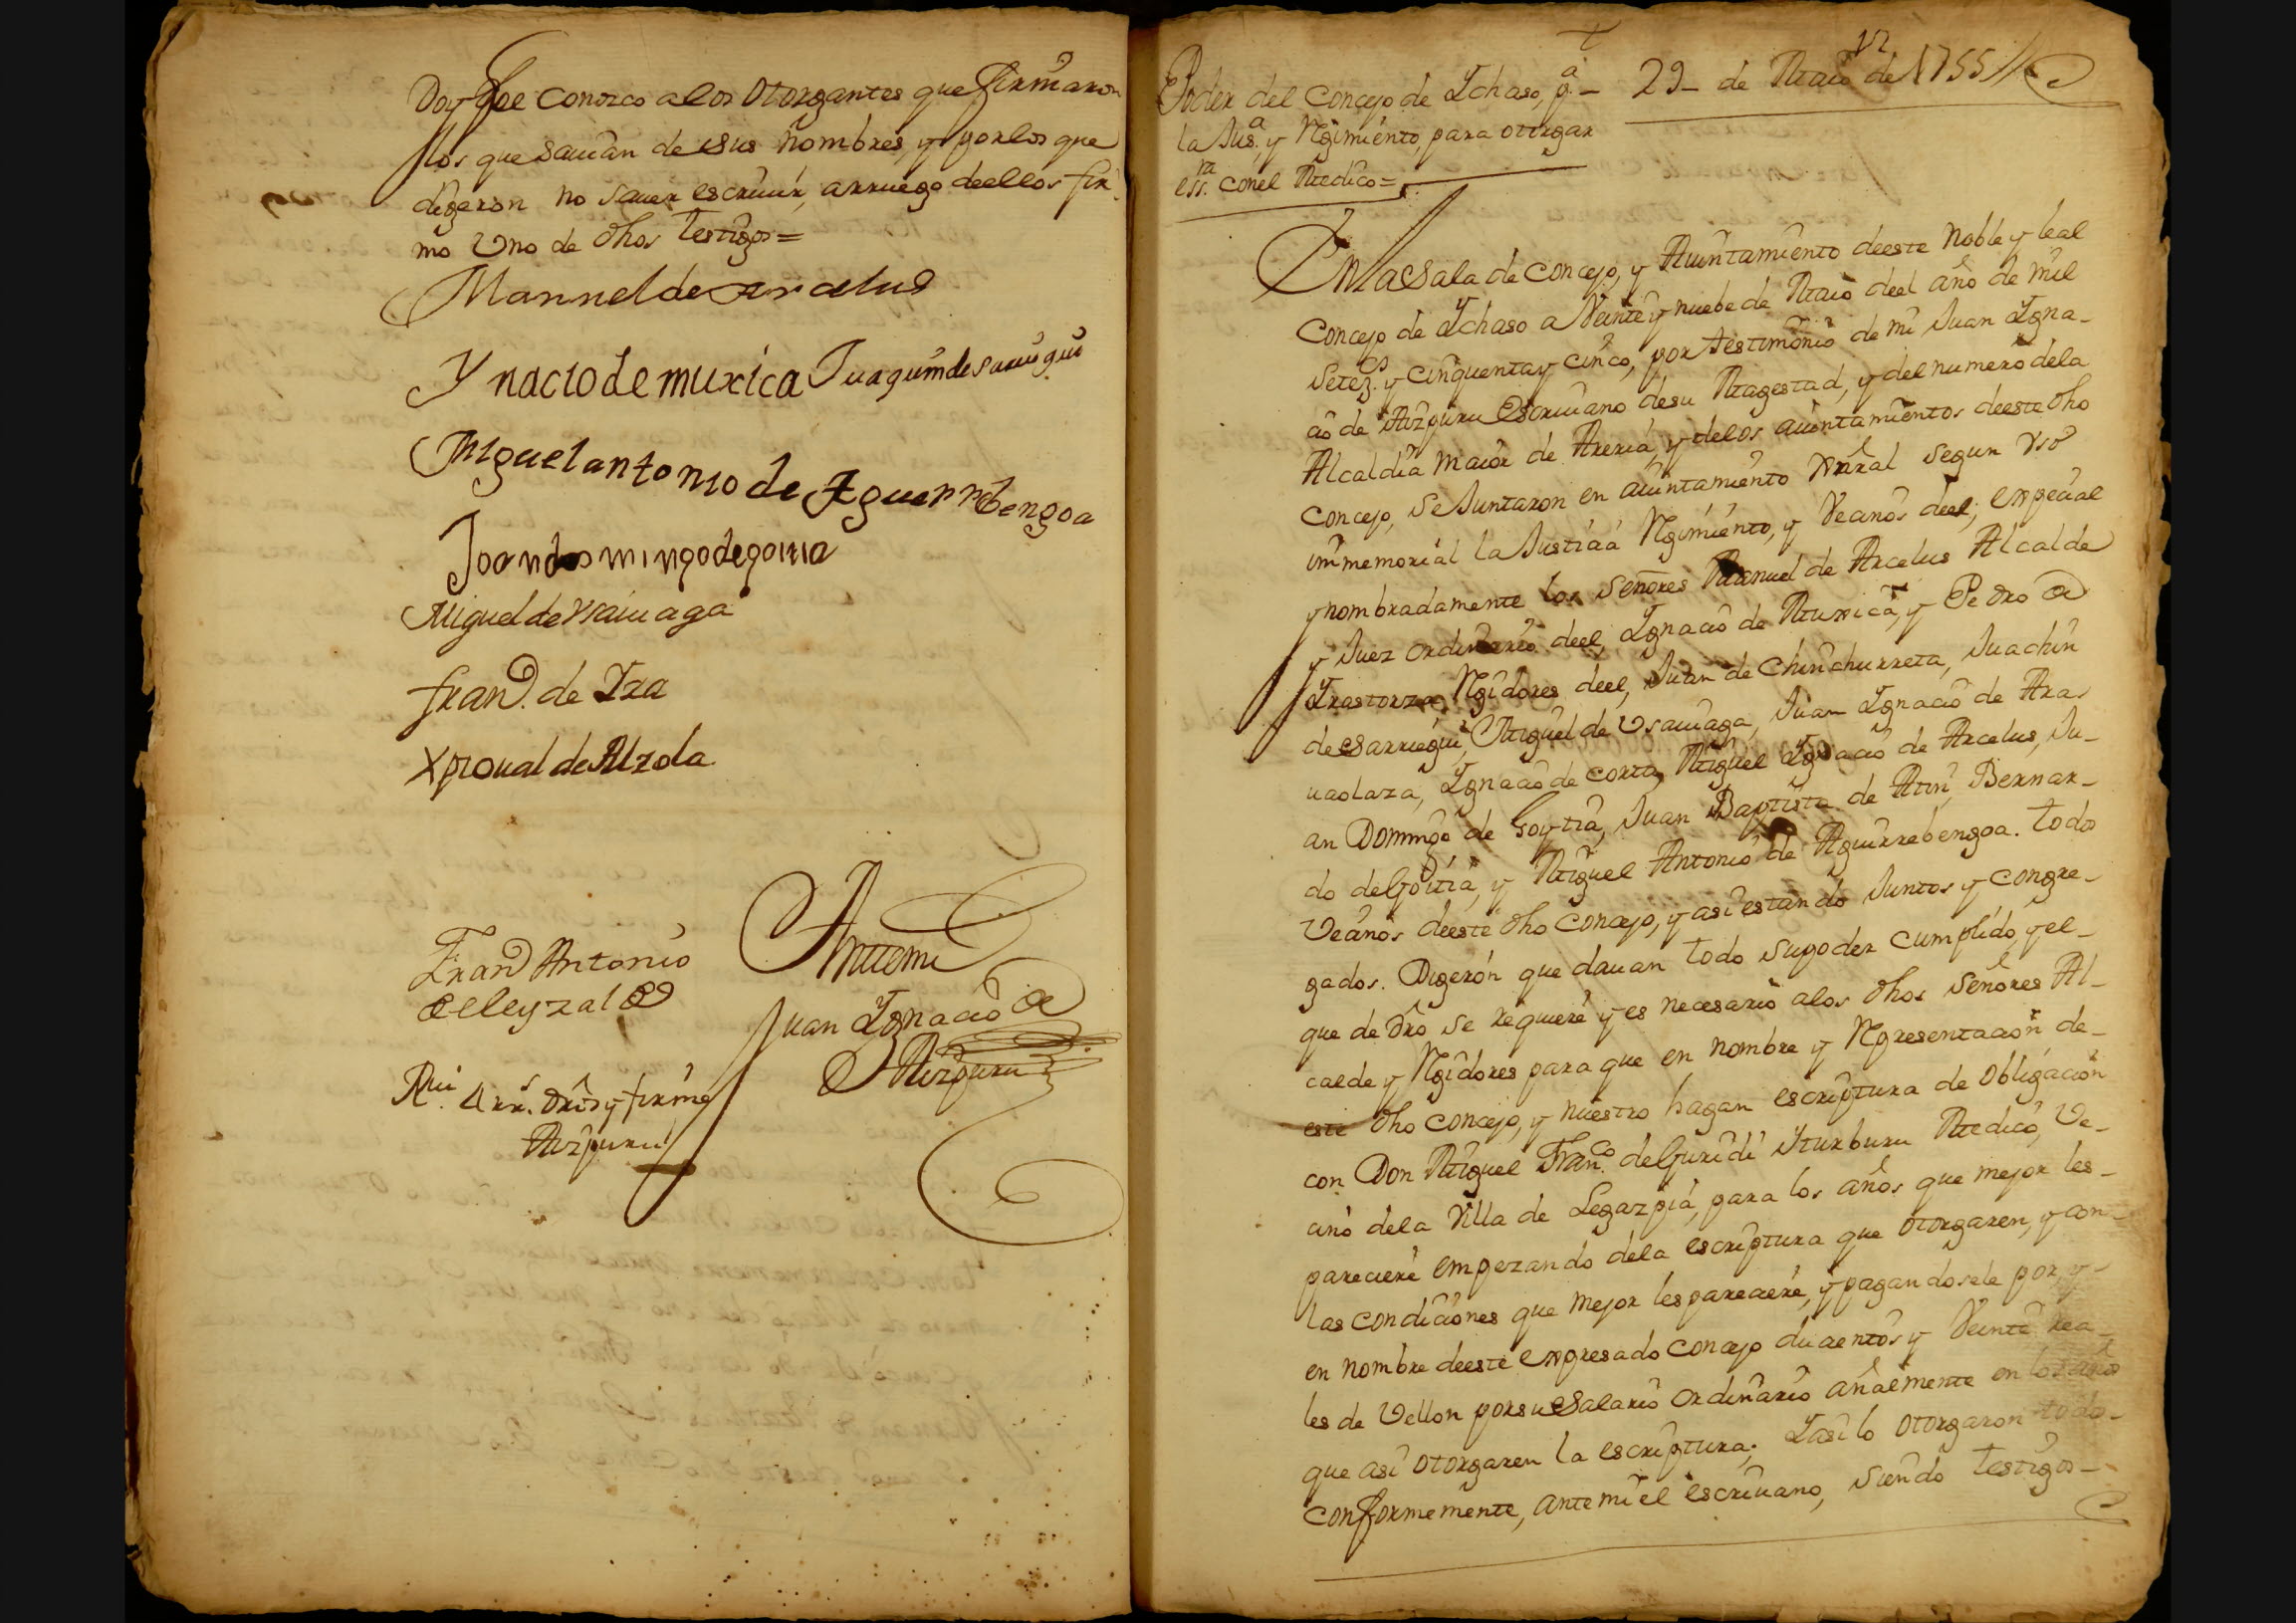 Doy fee conozco a los otorgantes que firmaron
los que sauian de sus nombres, y por los que
digeron no sauer escriuir, a rruego de ellos fir-
mo Vno de dhos testigos =
Manuel de arcelus
Ynacio de muxica Juaquin de sarriegui
Miguel antonio de Aguerrebengoa
Joan domingo de goitia
Miguel de Vsauiaga
Fran.co de Iza
Xptoual de Alzola
Fran.co Antonio
de Eleyzalde
Antte mi
Juan Ygnacio de
Aizpuru
Rui 4 rr.s drôs y firme
Aizpuru
12
Poder del Concejo de Ychaso, p.a
la Jus.a y Rejimiento, para otorgar
ess.ra con el Medico =
29 de Maio de 1755
En la Sala de concejo, y Aiuntamiento de este Noble y leal
Concejo de Ychaso a Veinte y nuebe de Maio de el año de mil
Setez.s y cinquenta y cinco, por testimonio de mi Juan Ygna-
cio de Aizpuru Escriuano de su Magestad, y del numero de la
Alcaldia maior de Areria, y de los aiuntamientos de este dho
Concejo, se Juntaron en aiuntamiento xnral segun Vso
immemorial la Justicia Rejimiento, y Vecinos de el; expecial
y nombradamente los señores Manuel de Arcelus Alcalde
y Juez ordinario de el, Ygnacio de Muxica, y Pedro de
Yrastorza Rejidores de el, Juan de Chinchurreta, Juachin
de Sarriegui, Miguel de Vsauiaga, Juan Ygnacio de Ara-
uaolaza, Ygnacio de Corta, Miguel Ygnacio de Arcelus, Ju-
an Domingo de Goytia, Juan Baptista de Atin, Bernar-
do de Goitia, y Miguel Antonio de Aguirrebengoa. todos
Vecinos de este dho concejo, y asi estando Juntos y congre-
gados. Digeron que dauan todo su poder cumplido, y el-
que de dro se requiere y es necesario a los dhos señores Al-
calde y Rejidores para que en nombre y Representacion de-
este dho concejo, y nuestro hagan escriptura de obligacion
con Don Miguel Fran.co de Guridi Yturburu Medico, Ve-
cino de la Villa de Legazpia, para los años que mejor les-
pareciere empezando de la escriptura que otorgaren, y con-
las condiciones que mejor les pareciere, y pagandosele por, y-
en nombre de este expresado concejo ducientos y Veinte rea-
les de Vellon por su Salario ordinario añalmente en los años
que asi otorgaren la escriptura; Y asi lo otorgaron todos-
conformemente, ante mi el escriuano, siendo testigos-